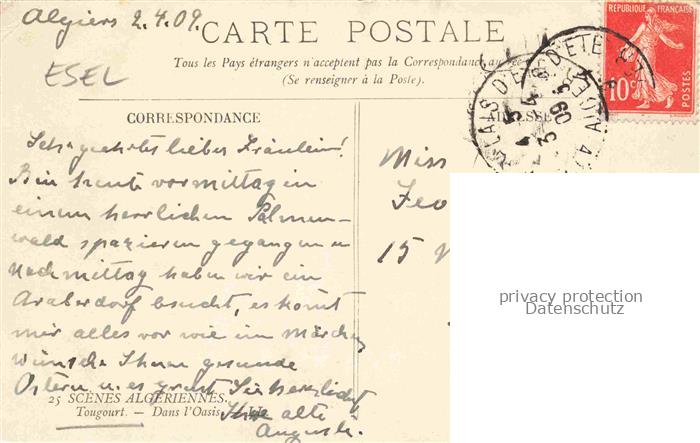 Algiers 2.4.09.
CARTE POSTALE
Tous les Pays étrangers n'acceptent pas la Correspondance au
(Se renseigner à la Poste).
ESEL
RÉPUBLIQUE FRANÇAISE
10c
POSTES
CORRESPONDANCE
ADRESSE
Sehr geehrtes liebes Fräulein!
Bin heute vormittag in
einem herrlichen Palmen-
wald spazieren gegangen u
Nachmittag haben wir ein
Araberdorf besucht, es komt
mir alles vor wie im Märchen
wünsche Ihnen gesunde
Ostern u. es grüsst Sie herzlichst
Ihre alte
Auguste.
Miss
15
25 SCÈNES ALGÉRIENNES.
Tougourt. — Dans l'Oasis. — LL.
privacy protection
Datenschutz